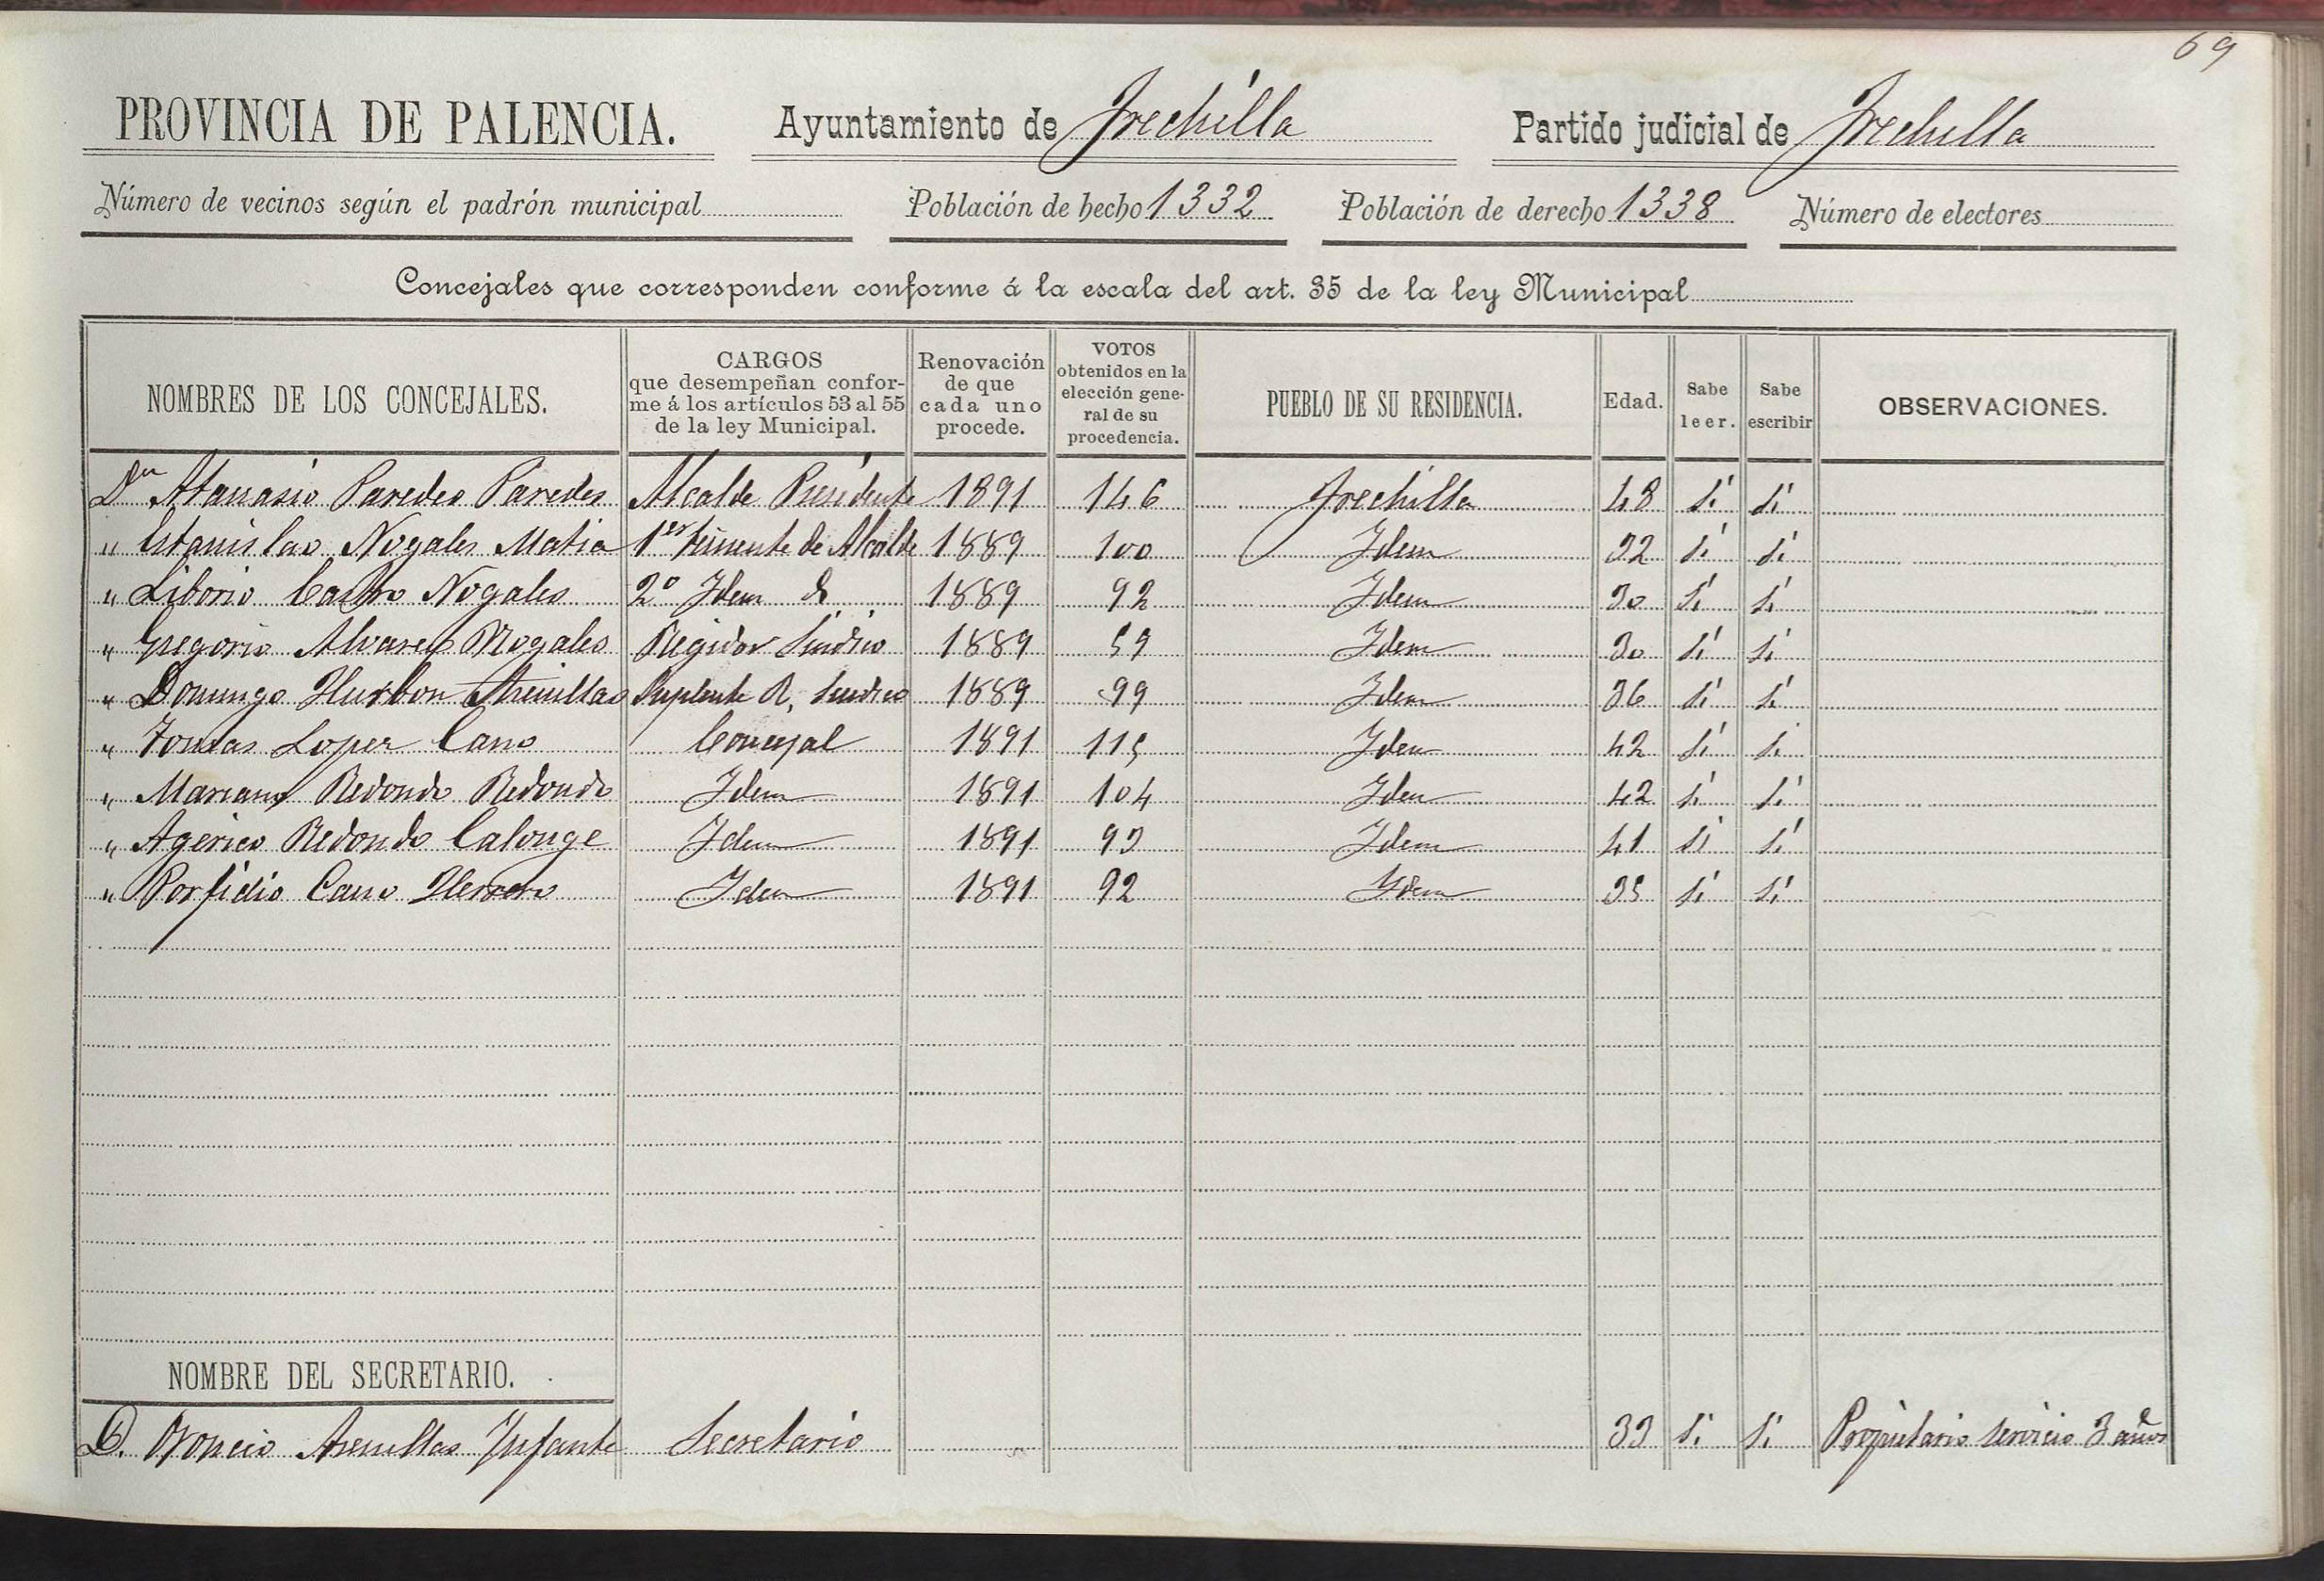 69
PROVINCIA DE PALENCIA. Ayuntamiento de Frechilla Partido judicial de Frechilla
Número de vecinos según el padrón municipal Población de hecho 1332 Población de derecho 1338 Número de electores
Concejales que corresponden conforme á la escala del art. 35 de la ley Municipal
NOMBRES DE LOS CONCEJALES. CARGOS que desempeñan conforme á los artículos 53 al 55 de la ley Municipal. Renovación de que cada uno procede. VOTOS obtenidos en la elección general de su procedencia. PUEBLO DE SU RESIDENCIA. Edad. Sabe leer. Sabe escribir OBSERVACIONES.
Dn Atanasio Paredes Paredes Alcalde Presidente 1891 146 Frechilla 48 Sí Sí
" Estanislao Nogales Matia 1er teniente de Alcalde 1889 100 Idem 32 Sí Sí
" Liborio Castro Nogales 2º Idem 1889 92 Idem 30 Sí Sí
" Gregorio Alvarez Nogales Regidor Sindico 1889 59 Idem 30 Sí Sí
" Domingo Hurbon Arenillas Suplente R. Sindico 1889 99 Idem 36 Sí Sí
" Tomas Lopez Cano Concejal 1891 115 Idem 42 Sí Si
" Mariano Redondo Redondo Idem 1891 104 Idem 42 Sí Sí
" Agerico Redondo Calonge Idem 1891 93 Idem 41 Sí Sí
" Porfidio Cano Herrero Idem 1891 92 Idem 35 Sí Sí
NOMBRE DEL SECRETARIO.
D. Oroncio Arenillas Infante Secretario 33 Si Si Propietario servicio 3 años